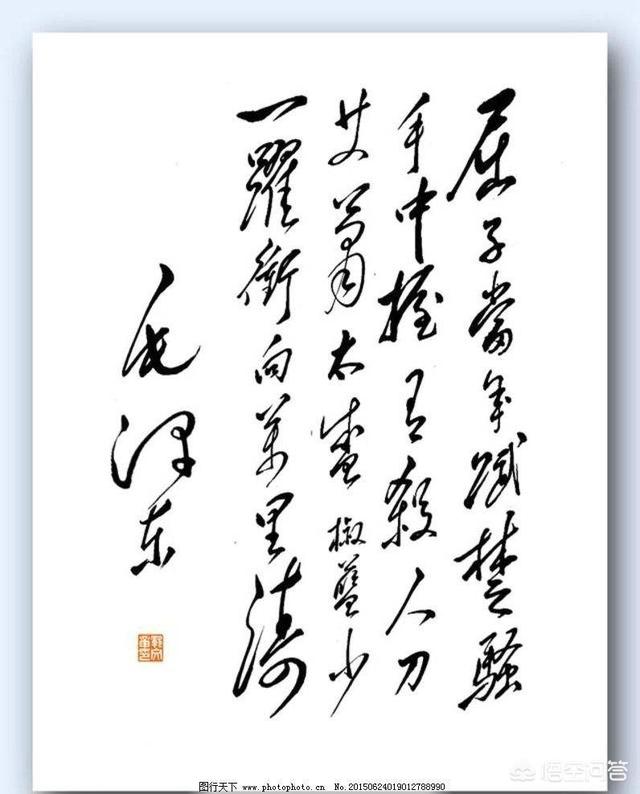 屈子當年賦楚騷
手中握有殺人刀
艾蕭太盛椒蘭少
一躍衝向萬里濤
毛泽东
图行天下 www.photophoto.cn No.20150624019012788990
悟空问答